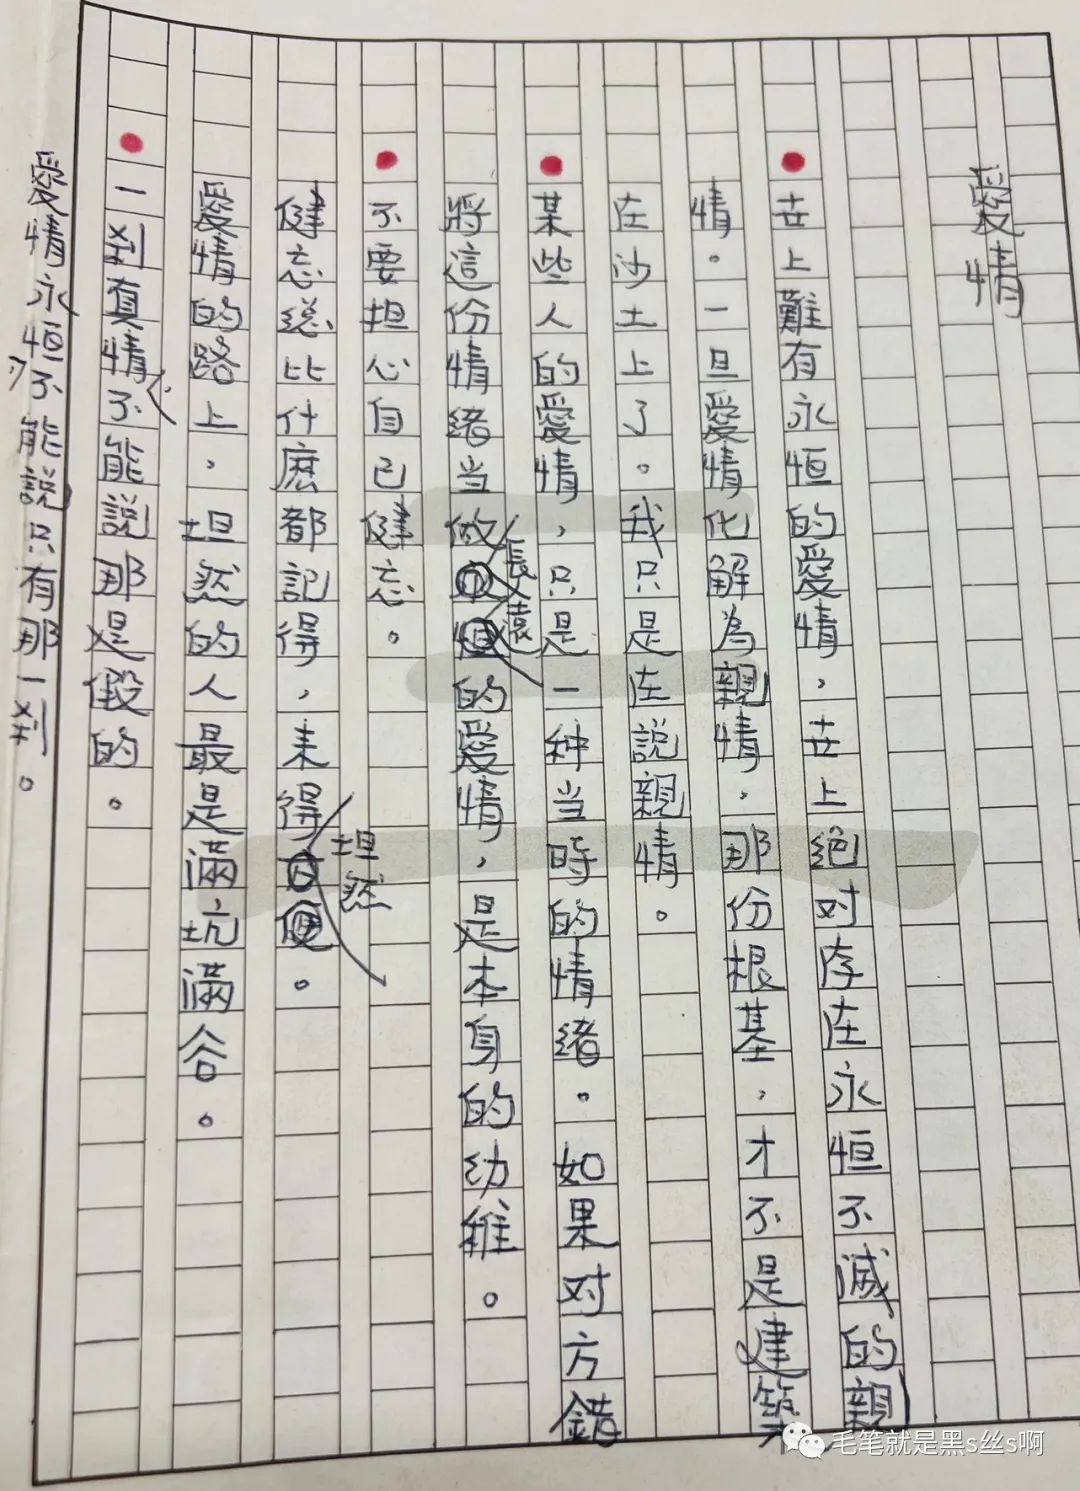 愛情
世上難有永恒的愛情，世上絕对存在永恒不滅的親
情。一旦愛情化解為親情，那份根基，才不是建築
在沙土上了。我只是在説親情。
某些人的愛情，只是一种当時的情緒。如果对方錯
將這份情緒当做長遠的愛情，是本身的幼稚。
不要担心自已健忘。
健忘總比什麽都記得，来得坦然。
愛情的路上，坦然的人最是滿坑滿谷。
一刹真情不能説那是假的。
愛情永恒不能説只有那一刹。
毛笔就是黑s丝s啊